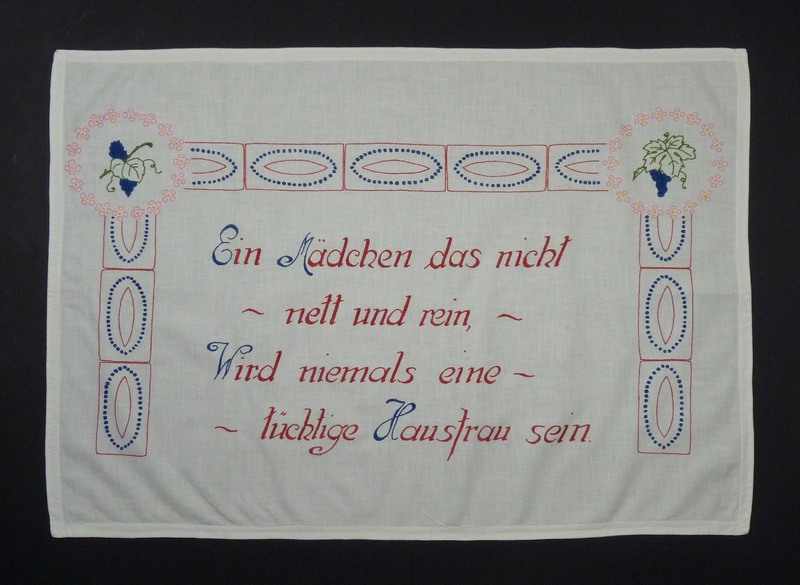 Ein Mädchen das nicht
~ nett und rein, ~
Wird niemals eine ~
~ tüchtige Hausfrau sein.